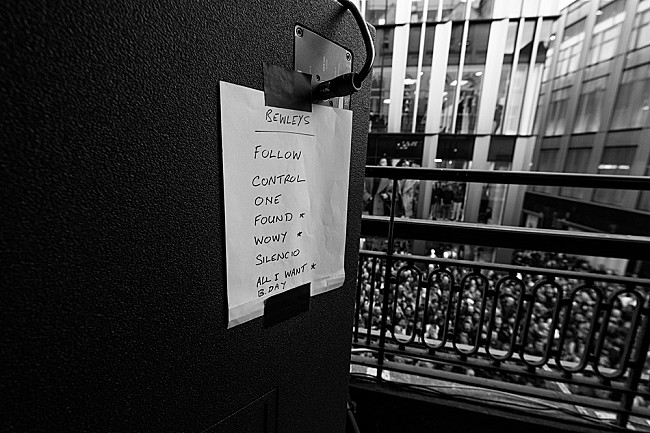 BEWLEYS
FOLLOW
CONTROL
ONE
FOUND *
WOWY *
SILENCIO
ALL I WANT *
B.DAY